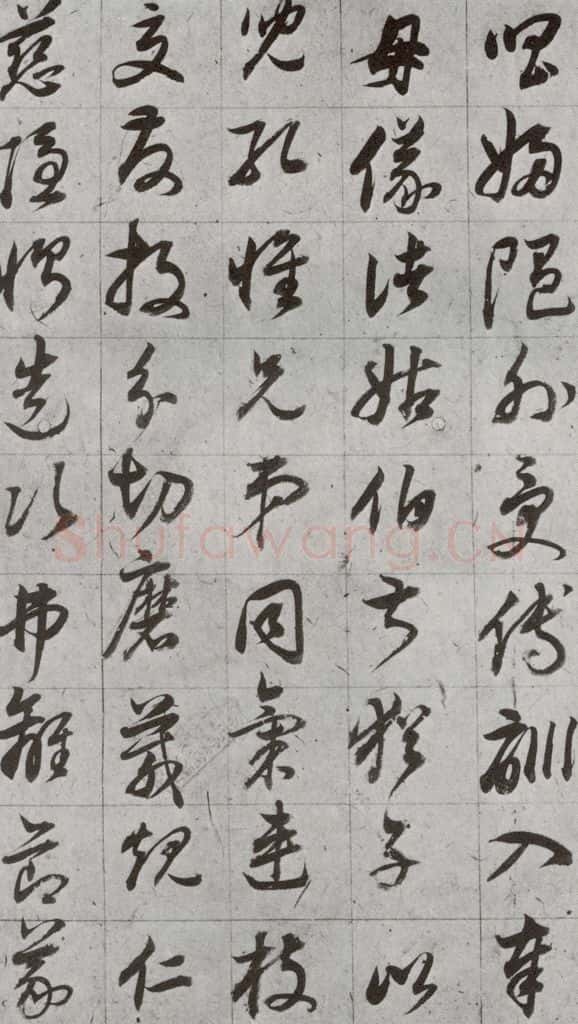 唱婦隨外受傅訓入奉
母儀諸姑伯叔猶子比
兒孔懷兄弟同氣連枝
交友投分切磨箴規仁
慈隱惻造次弗離節義
Shufawang.CN